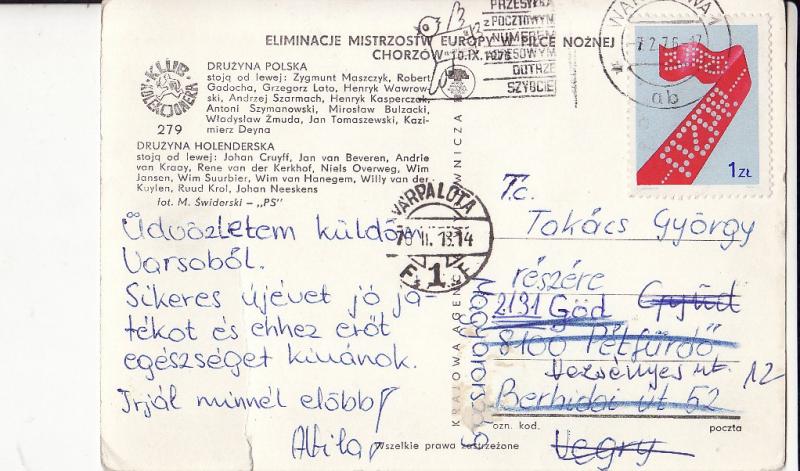 ELIMINACJE MISTRZOSTW EUROPY W PIŁCE NOŻNEJ
CHORZÓW 10.IX.1975
KLUB KOLEKCJONERA
279
DRUŻYNA POLSKA
stoją od lewej: Zygmunt Maszczyk, Robert
Gadocha, Grzegorz Lato, Henryk Wawrow-
ski, Andrzej Szarmach, Henryk Kasperczak,
Antoni Szymanowski, Mirosław Bulzacki,
Władysław Żmuda, Jan Tomaszewski, Kazi-
mierz Deyna
DRUŻYNA HOLENDERSKA
stoją od lewej: Johan Cruyff, Jan van Beveren, Andrie
van Kraay, Rene van der Kerkhof, Niels Overweg, Wim
Jansen, Wim Suurbier, Wim van Hanegem, Willy van der
Kuylen, Ruud Krol, Johan Neeskens
fot. M. Świderski — „PS"
Üdvözletem küldöm
Varsoból.
Sikeres újévet jó já-
tékot és ehhez erőt
egészséget kivánok.
Irjál minnél előbb!
Attila
PRZESYŁKA
z POCZTOWYM
NUMEREM
ADRESOWYM
DOTRZE
SZYBCIEJ
WARSZAWA 1
ab
1 ZŁ
VÁRPALOTA
76 II. 13.14
1
KRAJOWA AGENCJA WYDAWNICZA
Tc.
Takács György
részére
2131 Göd
8100 Pétfürdő
Vezsényes ut. 12
Berhidai út 52
Magyarország
Węgry
ozn. kod.
poczta
Wszelkie prawa zastrzeżone